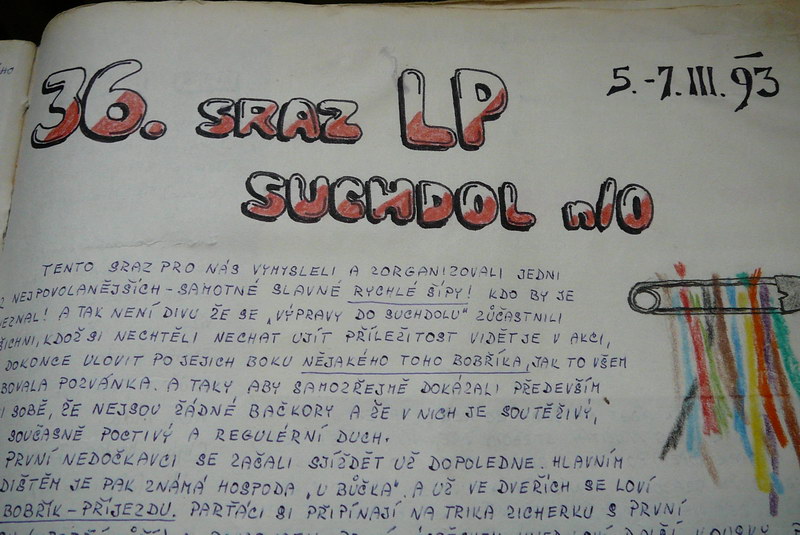 36. SRAZ LP
5.-7.III.93
SUCHDOL n/O
TENTO SRAZ PRO NÁS VYMYSLELI A ZORGANIZOVALI JEDNI
Z NEJPOVOLANĚJŠÍCH - SAMOTNÉ SLAVNÉ RYCHLÉ ŠÍPY! KDO BY JE
NEZNAL! A TAK NENÍ DIVU ŽE SE „VÝPRAVY DO SUCHDOLU" ZÚČASTNILI
VŠICHNI, KDOŽ SI NECHTĚLI NECHAT UJÍT PŘÍLEŽITOST VIDĚT JE V AKCI,
DOKONCE ULOVIT PO JEJICH BOKU NĚJAKÉHO TOHO BOBŘÍKA, JAK TO VŠEM
POZVÁNKA. A TAKY ABY SAMOZŘEJMĚ DOKÁZALI PŘEDEVŠÍM
SOBĚ, ŽE NEJSOU ŽÁDNÉ BAČKORY A ŽE V NICH JE SOUTĚŽIVÝ,
SOUČASNĚ POCTIVÝ A REGULÉRNÍ DUCH.
PRVNÍ NEDOČKAVCI SE ZAČALI SJÍŽDĚT UŽ DOPOLEDNE. HLAVNÍM
JE PAK ZNÁMÁ HOSPODA „U BŮČKA". A UŽ VE DVEŘÍCH SE LOVÍ
BOBŘÍK - PŘÍJEZDU. PARŤÁCI SI PŘIPÍNAJÍ NA TRIKA ZICHERKU S PRVNÍ